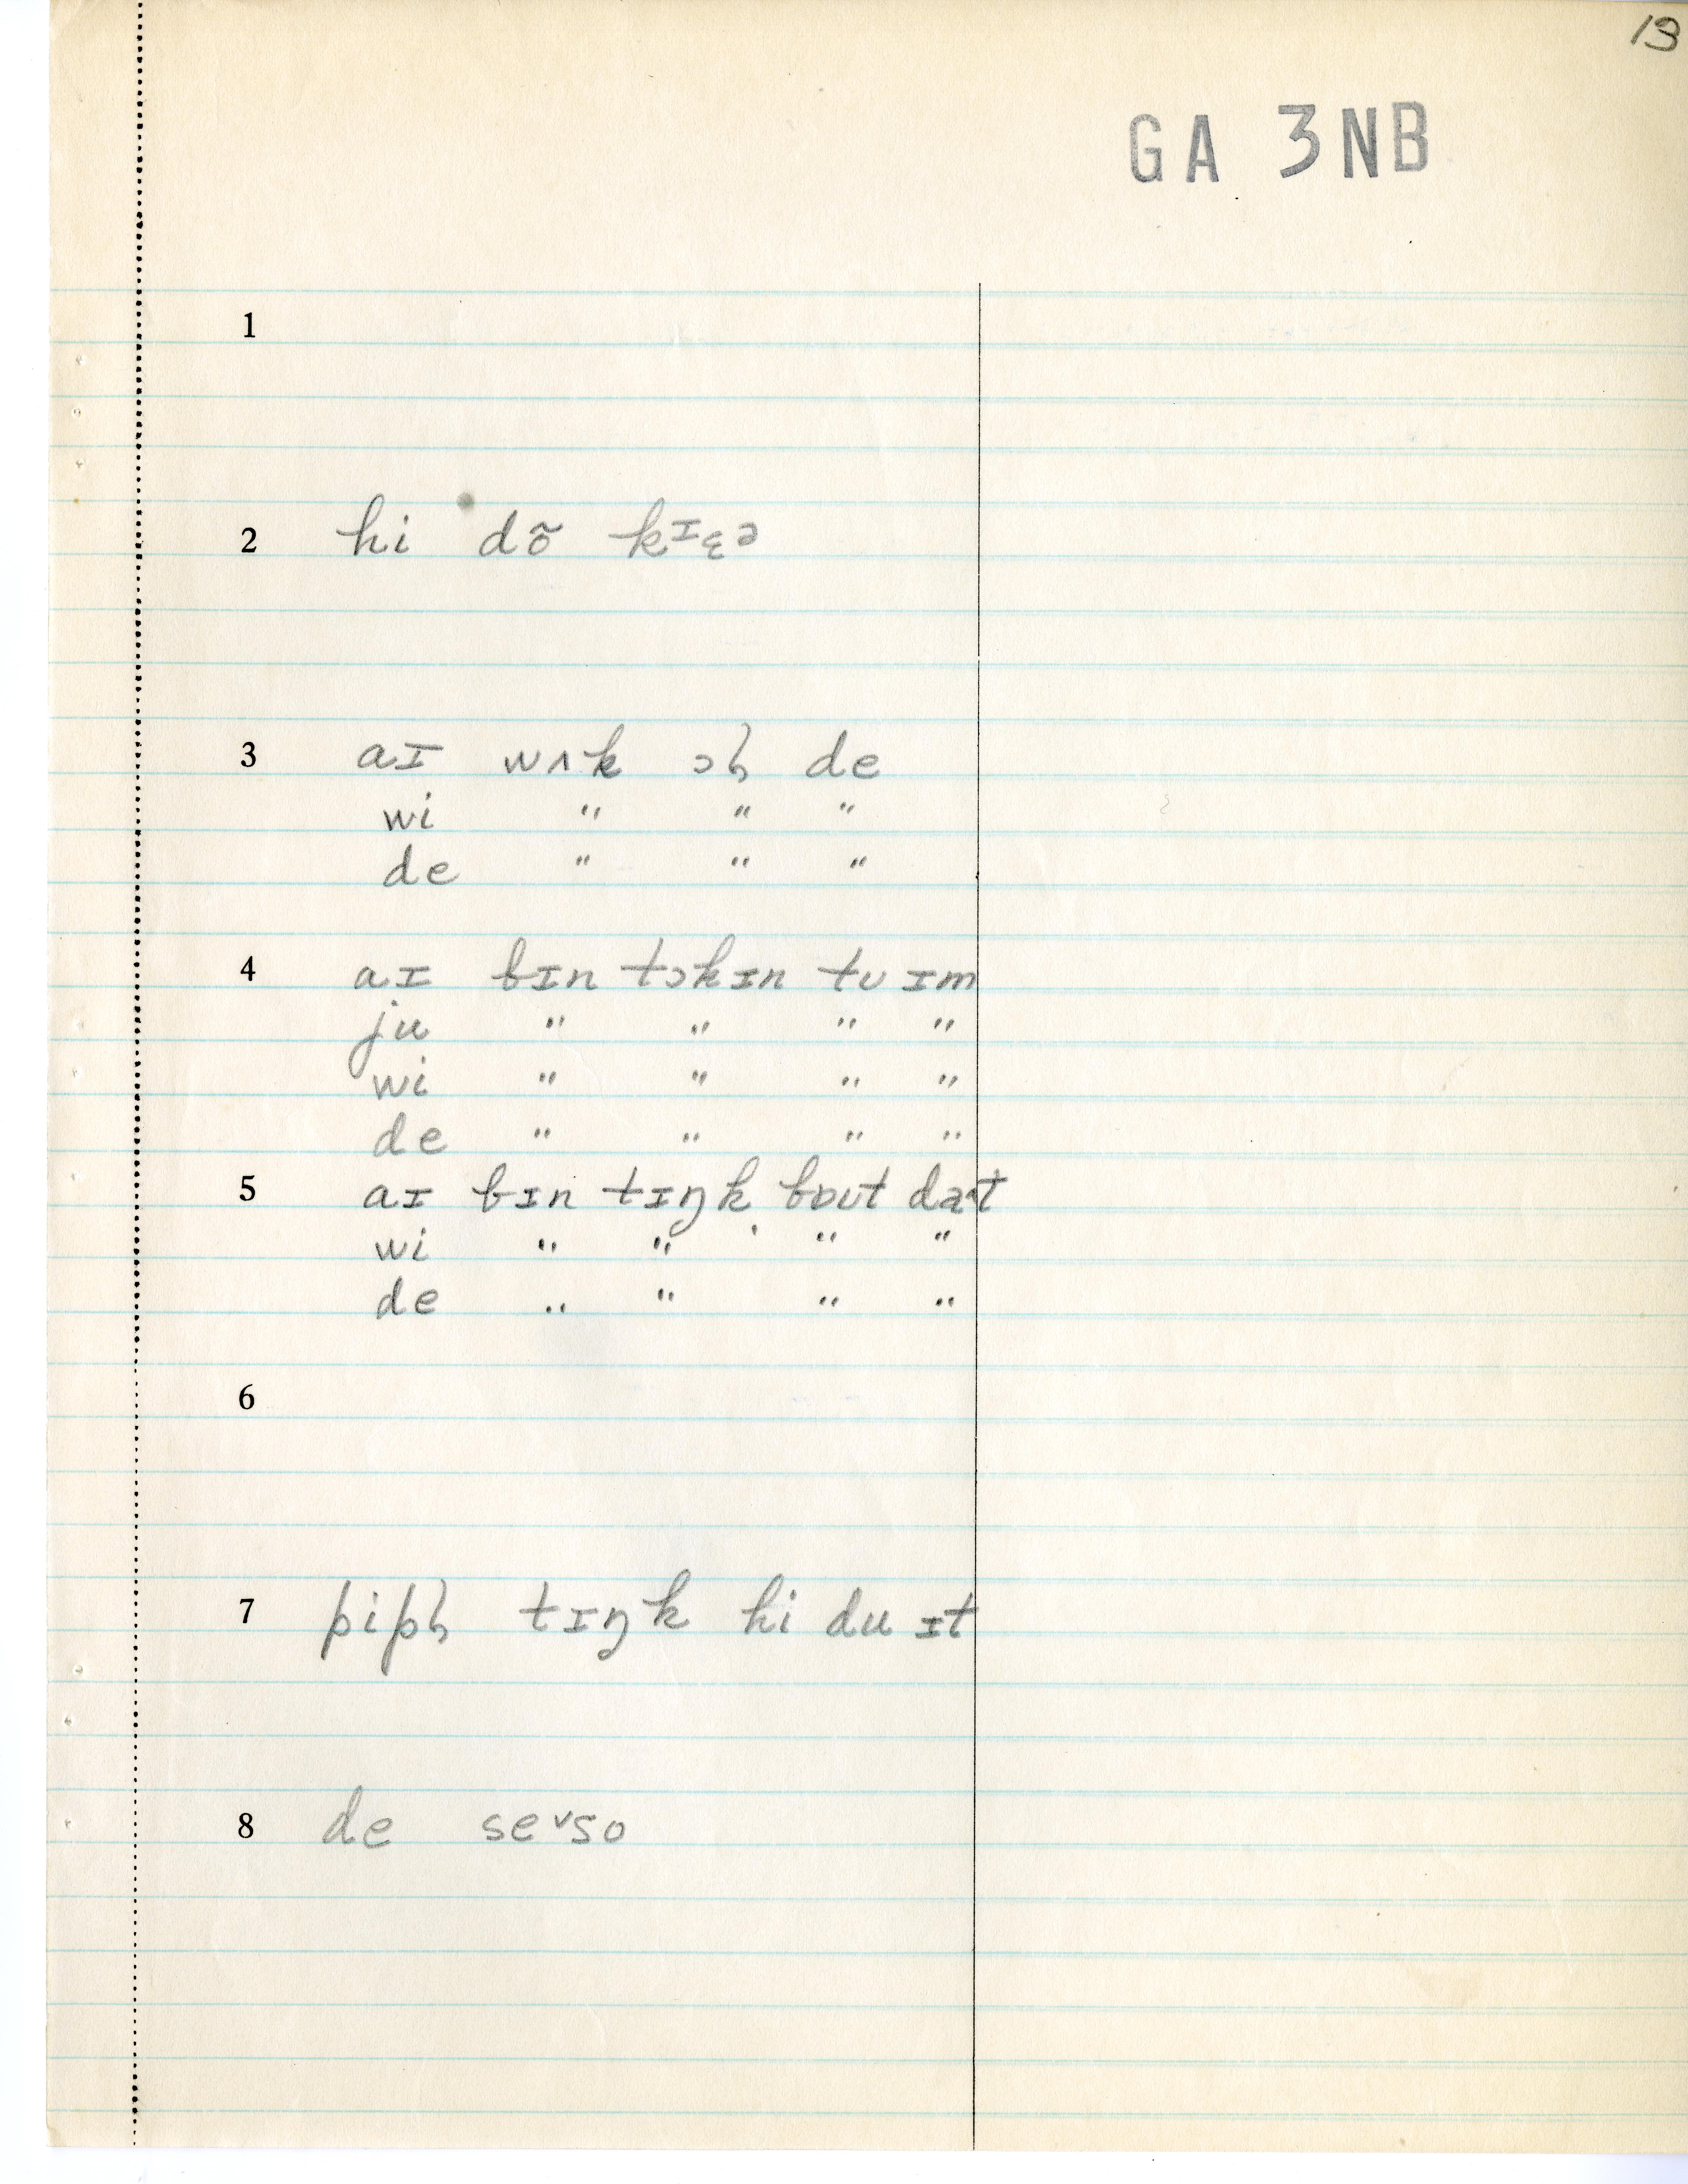 13
GA 3NB
1
2 hi dõ kɪɛə
3 aɪ wʌk ɔɦ de
wi " " "
de " " "
4 aɪ bɪn tɔkɪn tu ɪm
ju " " " "
wi " " " "
de " " " "
5 aɪ bɪn tɪŋk bɒut dat
wi " " " "
de " " " "
6
7 pipɦ tɪŋk hi du ɪt
8 de se˅so